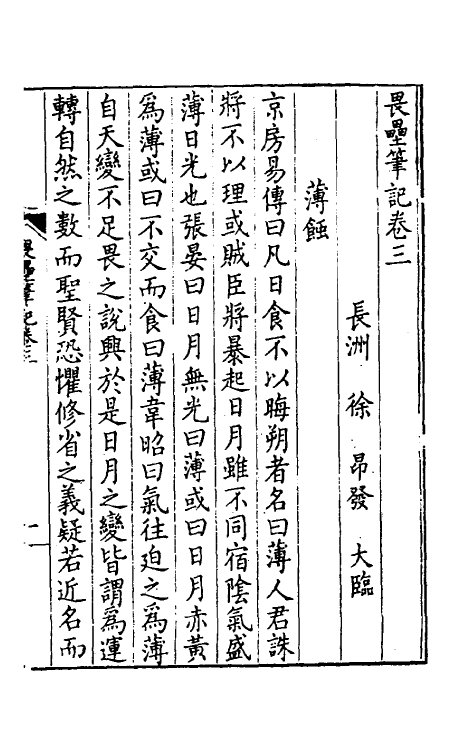 畏壘筆記卷三
長洲 徐 昂發 大臨
薄蝕
京房易傳曰凡日食不以晦朔者名曰薄人君誅
將不以理或賊臣將暴起日月雖不同宿陰氣盛
薄日光也張晏曰日月無光曰薄或曰日月赤黃
為薄或曰不交而食曰薄韋昭曰氣往迫之為薄
自天變不足畏之說興於是日月之變皆謂為運
轉自然之數而聖賢恐懼修省之義疑若近名而
畏壘筆記卷三
一